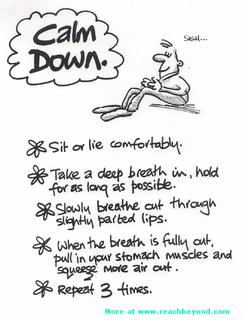 Calm
Down.
SIGH...
Sit or lie comfortably.
Take a deep breath in, hold
for as long as possible.
Slowly breathe out through
slightly parted lips.
When the breath is fully out,
pull in your stomach muscles and
squeeze more air out.
Repeat 3 times.
More at www.reachbeyond.com